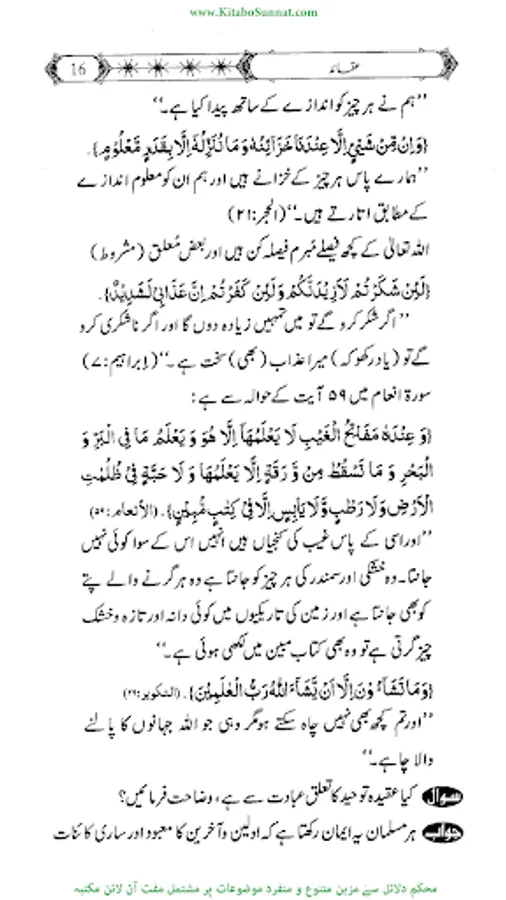 www.KitaboSunnat.com
عقائد
16
’’ہم نے ہر چیز کو اندازے کے ساتھ پیدا کیا ہے۔‘‘
{وَاِنْ مِّنْ شَيْءٍ اِلَّا عِنْدَنَا خَزَآئِنُهٗ وَمَا نُنَزِّلُهٗ اِلَّا بِقَدَرٍ مَّعْلُوْمٍ}.
’’ہمارے پاس ہر چیز کے خزانے ہیں اور ہم ان کو معلوم اندازے
کے مطابق اتارتے ہیں۔‘‘ (الحجر:۲۱)
اللہ تعالیٰ کے کچھ فیصلے مُبرم فیصلہ کن ہیں اور بعض مُعلق (مشروط)
{لَئِنْ شَكَرْتُمْ لَاَزِيْدَنَّكُمْ وَلَئِنْ كَفَرْتُمْ اِنَّ عَذَابِيْ لَشَدِيْدٌ}.
’’اگر شکر کرو گے تو میں تمہیں زیادہ دوں گا اور اگر ناشکری کرو
گے تو (یاد رکھو کہ) میرا عذاب (بھی) سخت ہے۔‘‘ (إبراہیم:۷)
سورۃ انعام میں ۵۹ آیت کے حوالہ سے ہے:
{وَ عِنْدَهٗ مَفَاتِحُ الْغَيْبِ لَا يَعْلَمُهَا اِلَّا هُوَ وَ يَعْلَمُ مَا فِي الْبَرِّ وَ
الْبَحْرِ وَ مَا تَسْقُطُ مِنْ وَّرَقَةٍ اِلَّا يَعْلَمُهَا وَ لَا حَبَّةٍ فِيْ ظُلُمٰتِ
الْاَرْضِ وَلَا رَطْبٍ وَّلَا يَابِسٍ اِلَّا فِيْ كِتٰبٍ مُّبِيْنٍ}. (الأنعام:۵۹)
’’اور اسی کے پاس غیب کی کنجیاں ہیں انہیں اس کے سوا کوئی نہیں
جانتا۔ وہ خشکی اور سمندر کی ہر چیز کو جانتا ہے وہ ہر گرنے والے پتے
کو بھی جانتا ہے اور زمین کی تاریکیوں میں کوئی دانہ اور تازہ وخشک
چیز گرتی ہے تو وہ بھی کتاب مبین میں لکھی ہوئی ہے۔‘‘
{وَمَا تَشَآءُوْنَ اِلَّا اَنْ يَّشَآءَ اللّٰهُ رَبُّ الْعٰلَمِيْنَ}. (التکویر:۲۹)
’’اور تم کچھ بھی نہیں چاہ سکتے مگر وہی جو اللہ جہانوں کا پالنے
والا چاہے۔‘‘
سوال کیا عقیدہ توحید کا تعلق عبادت سے ہے، وضاحت فرمائیں؟
جواب ہر مسلمان یہ ایمان رکھتا ہے کہ اولین وآخرین کا معبود اور ساری کائنات
محکم دلائل سے مزین متنوع و منفرد موضوعات پر مشتمل مفت آن لائن مکتبہ